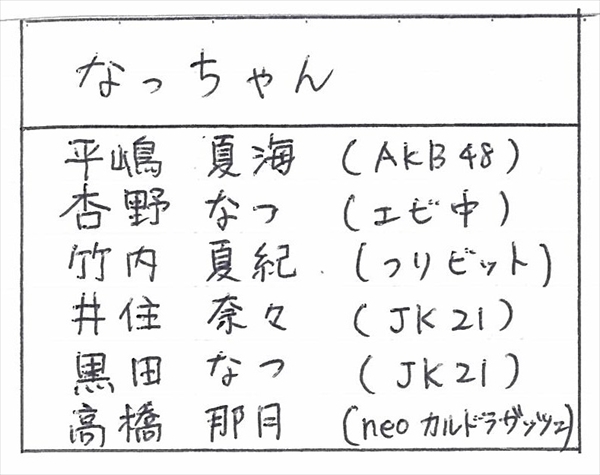 なっちゃん
平嶋 夏海 (AKB48)
杏野 なつ (エビ中)
竹内 夏紀 (つりビット)
井住 奈々 (JK21)
黒田 なつ (JK21)
高橋 那月 (neoカルドラ・ザッツェ)